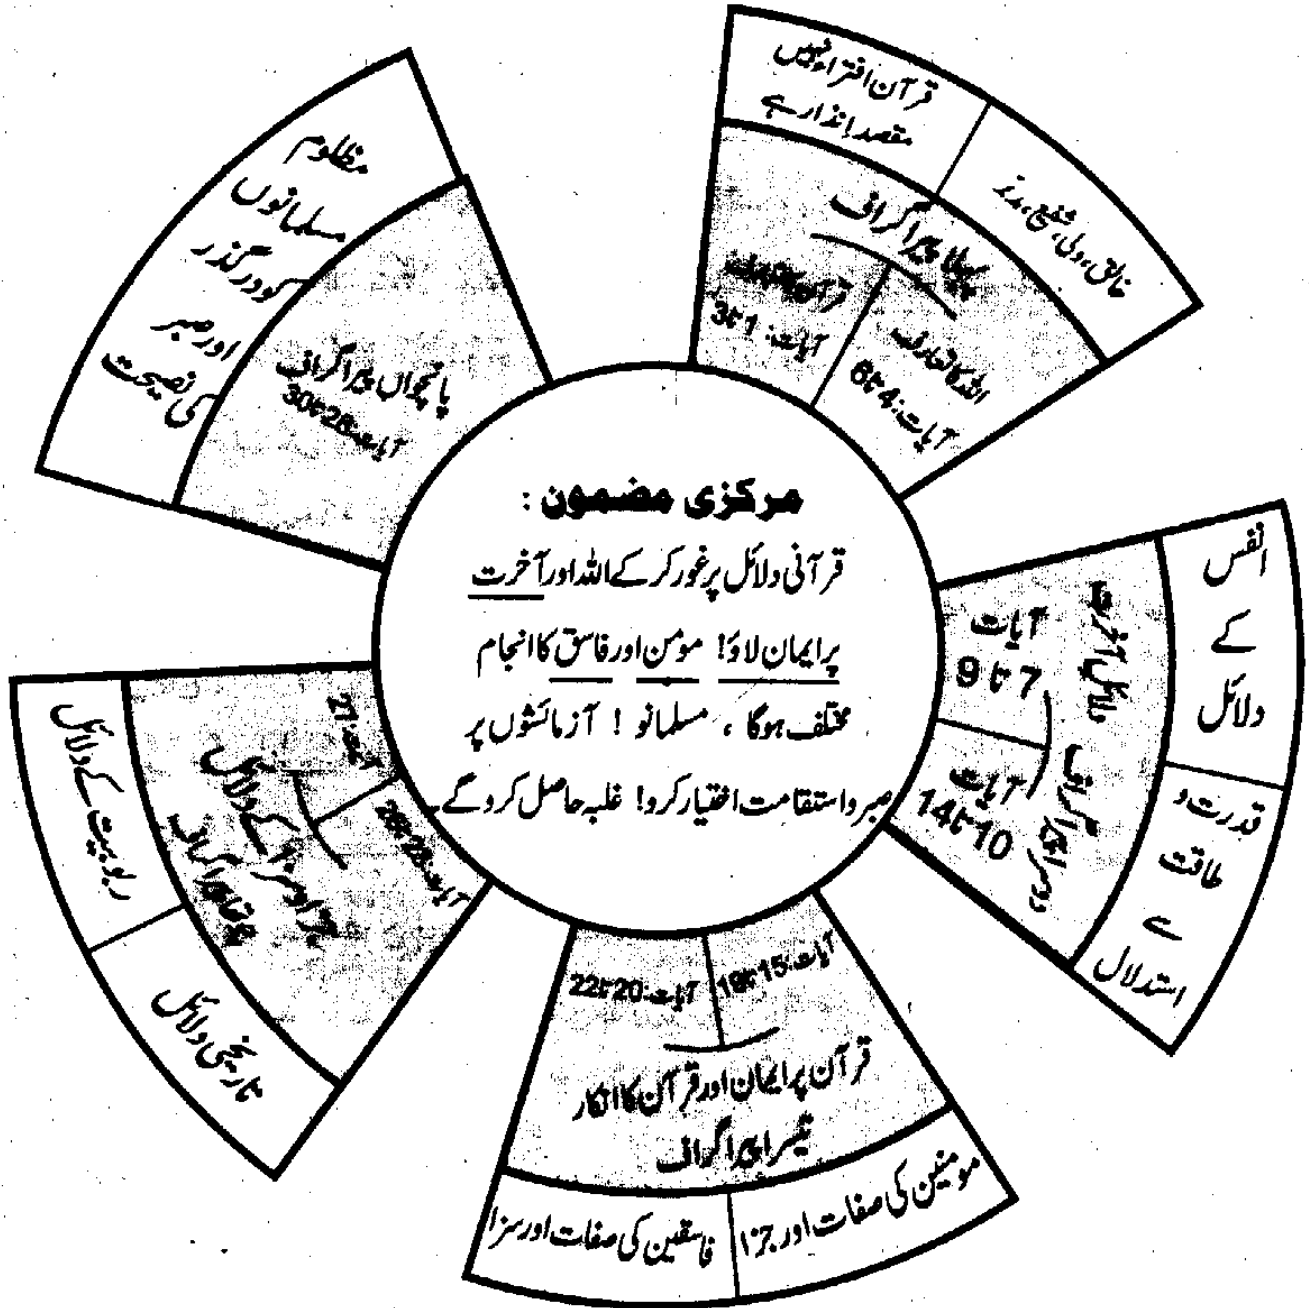 مرکزی مضمون :
قرآنی دلائل پر غور کر کے اللہ اور آخرت
پر ایمان لاؤ! مومن اور فاسق کا انجام
مختلف ہوگا ، مسلمانو ! آزمائشوں پر
صبر و استقامت اختیار کرو! غلبہ حاصل کرو گے۔
قرآن افتراء نہیں
مقصد انذار ہے
خالق، ولی، شفیع، مدبّر
پہلا پیراگراف
آیات: 1 تا 3
اللہ کا تعارف
آیات: 4 تا 6
انفس
کے
دلائل
قدرت و
طاقت
سے
استدلال
دوسرا پیراگراف
دلائل آخرت
آیات
7 تا 9
آیات
10 تا 14
آیات: 15 تا 19
آیات: 20 تا 22
قرآن پر ایمان اور قرآن کا انکار
تیسرا پیراگراف
مومنین کی صفات اور جزا
فاسقین کی صفات اور سزا
آیات: 23 تا 26
آیت: 27
جزا و سزا کے دلائل
چوتھا پیراگراف
تاریخی دلائل
ربوبیت کے دلائل
مظلوم
مسلمانوں
کو درگذر
اور صبر
کی نصیحت
پانچواں پیراگراف
آیات: 28 تا 30